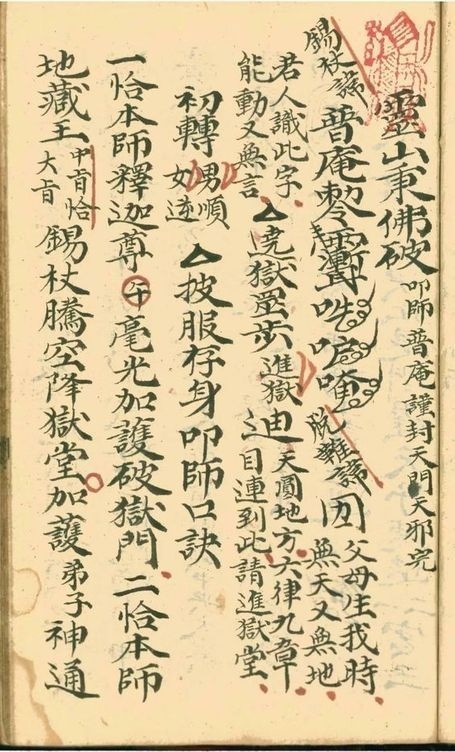 靈山秉佛破 叩師普庵謹封天門天邪完
錫杖諱 普庵 脫難諱 父母生我時 無天又無地
若人識此字 能動又無言 △遶獄罡步 進獄 迪 天圓地方 六律九章 目連到此 請進獄堂
初轉 男順 女逆 △披服存身叩師口訣
一恰本師釋迦尊 午 毫光加護破獄門 二恰本師
地藏王 中旨恰 大旨 錫杖騰空降獄堂 加護 弟子神通